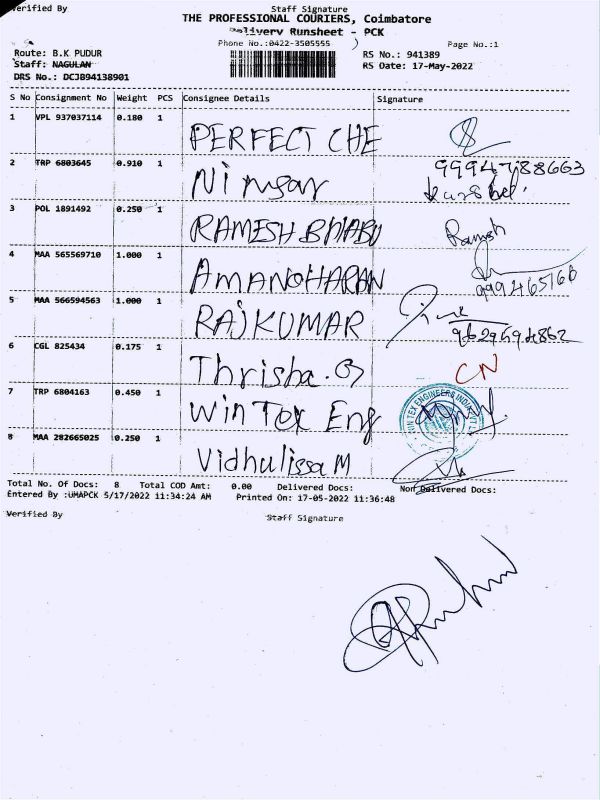 Verified By Staff Signature
THE PROFESSIONAL COURIERS, Coimbatore
Delivery Runsheet - PCK
Phone No.:0422-3505555 Page No.:1
Route: B.K PUDUR RS No.: 941389
Staff: NAGULAN RS Date: 17-May-2022
DRS No.: DCJB94138901
S No Consignment No Weight PCS Consignee Details Signature
1 VPL 937037114 0.180 1 PERFECT CHE
2 TRP 6803645 0.910 1 Ni nsar
3 POL 1891492 0.250 1 RAMESH BABU Ramesh
4 MAA 565569710 1.000 1 AMANOHARAN
5 MAA 566594563 1.000 1 RAJKUMAR
6 CGL 825434 0.175 1 Thrisha.G CN
7 TRP 6804163 0.450 1 Win Tex Eng WIN TEX ENGINEERS INDIA
8 MAA 282665025 0.250 1 Vidhulissa M
Total No. Of Docs: 8 Total COD Amt: 0.00 Delivered Docs: Non Delivered Docs:
Entered By :UMAPCK 5/17/2022 11:34:24 AM Printed On: 17-05-2022 11:36:48
Verified By Staff Signature